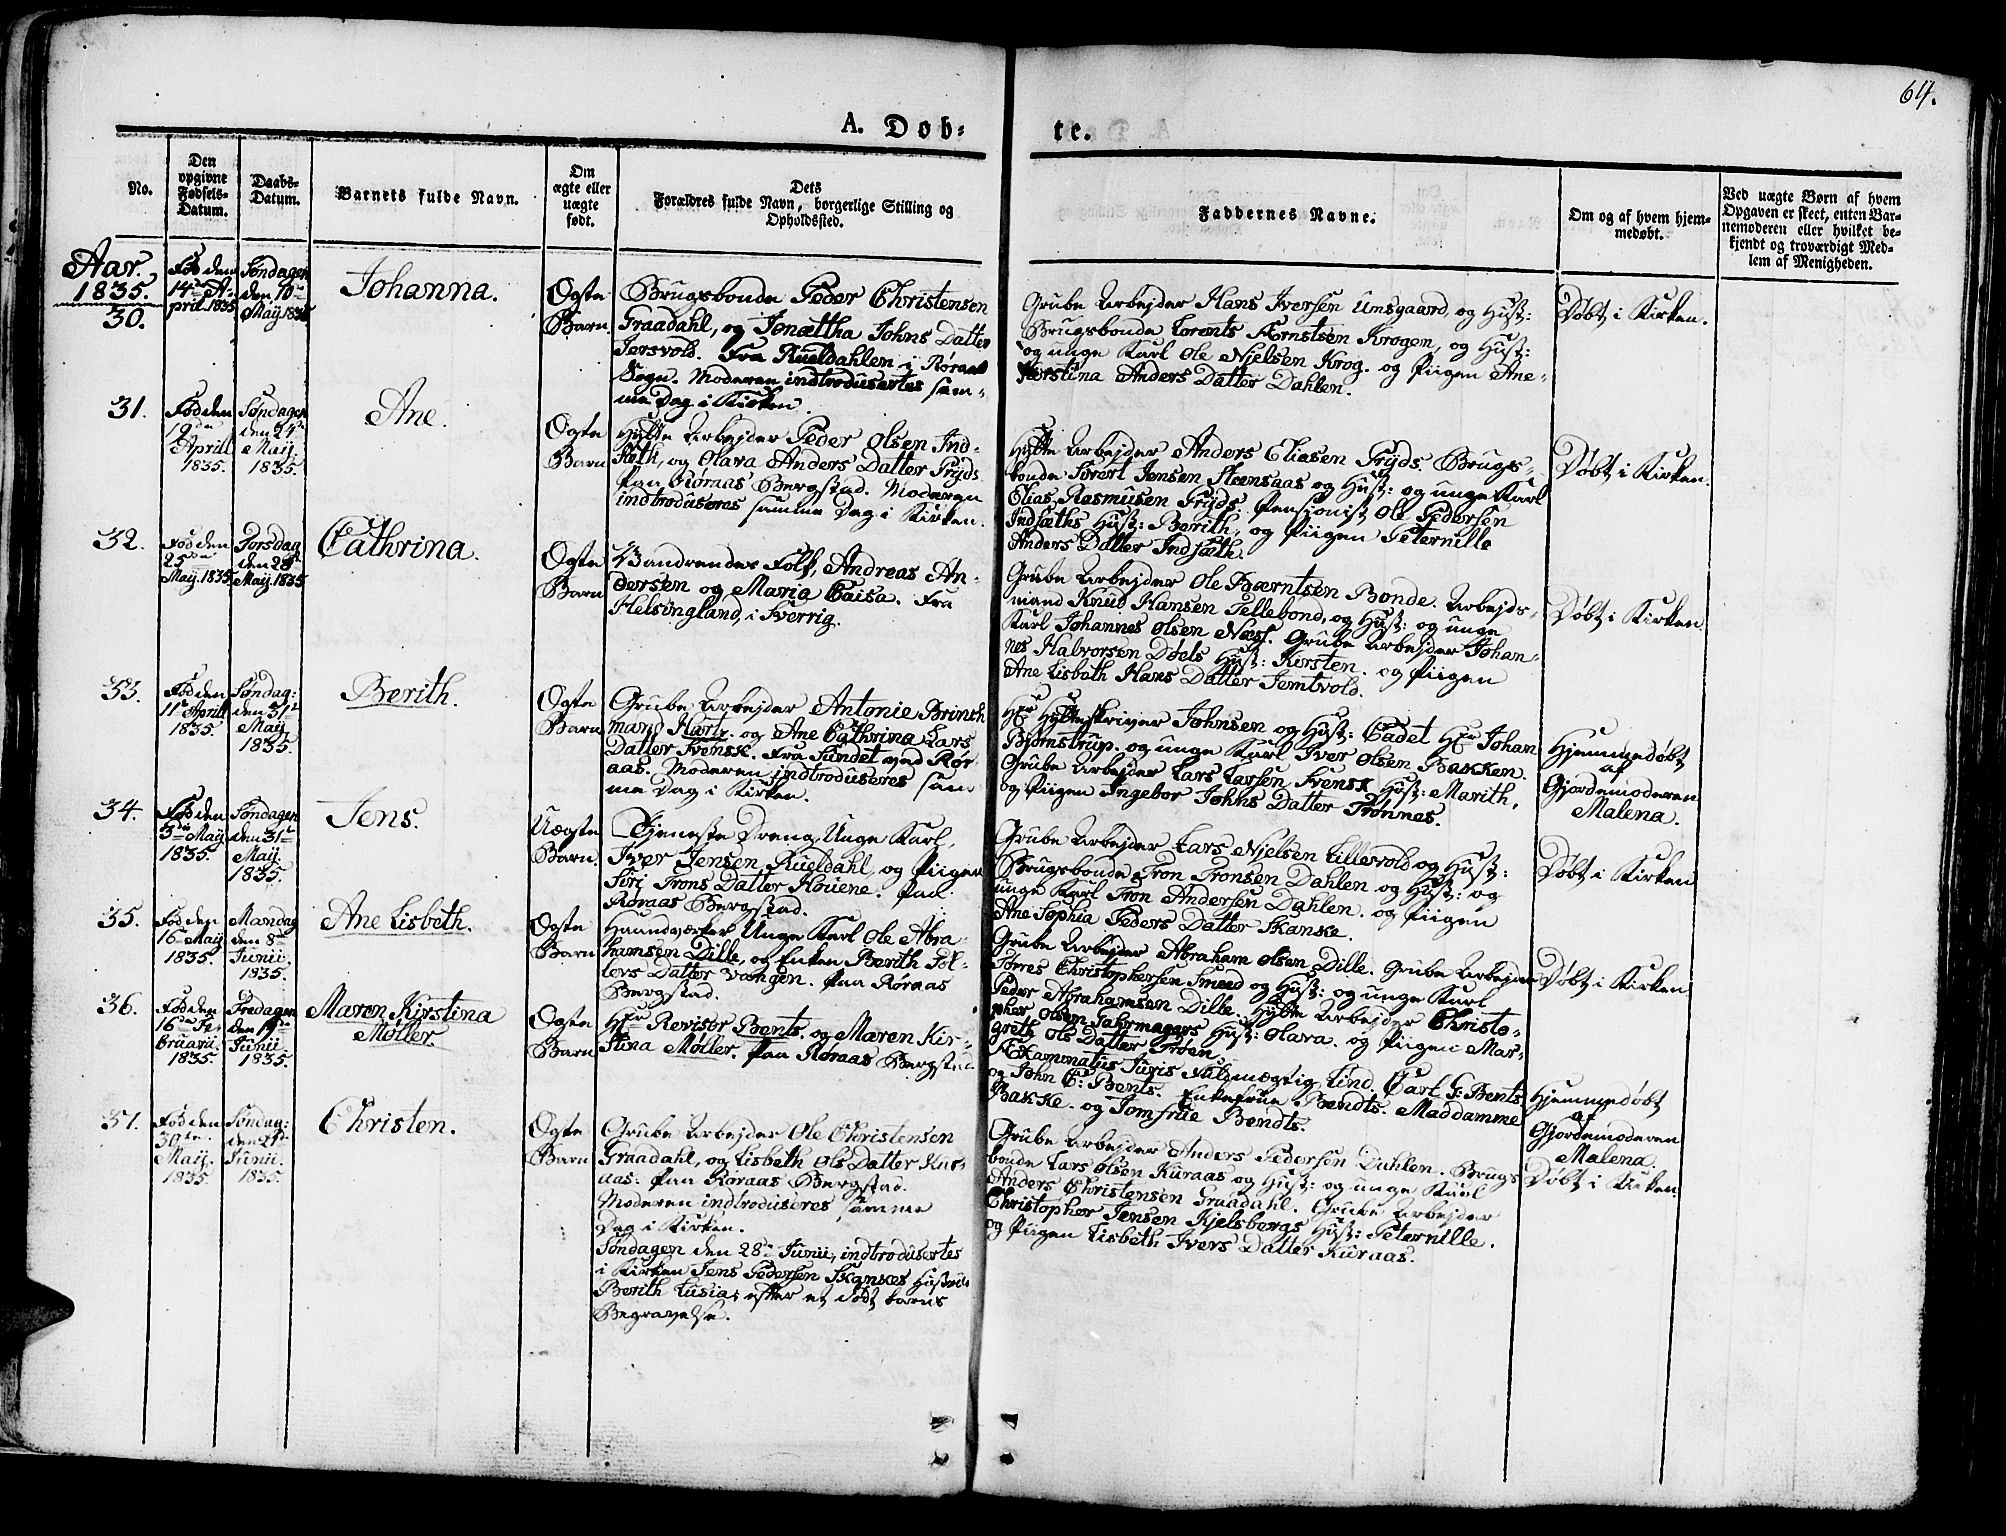 64.
A. Døb-
te.
No.
Den
opgivne
Fødsels-
Datum.
Daabs-
Datum.
Barnets fulde Navn.
Om
ægte eller
uægte
født.
Dets
Forældres fulde Navn, borgerlige Stilling og
Opholdssted.
Faddernes Navne.
Om og af hvem hjem-
medøbt.
Ved uægte Børn af hvem
Opgaven er skeet, enten Bar-
nemoderen eller hvilket be-
kjendt og troværdigt Med-
lem af Menigheden.
Aar.
1835.
30.
Fød den
14de A-
pril 1835
Søndagen
den 10de
Maij 1835
Johanna.
Ægte
Barn
Brugsbonde Peder Christensen
Graadahl, og Jonættha Johns Datter
Jersvold. Fra Rueldahlen i Røraas
Sogn. Moderen indtrodusertes sam-
me Dag i Kirken.
Grube Arbejder Hans Iversen Umsgaard, og Hust:
Brugsbonde Lorents Ærnstsen Krogen, og Hust:
og unge Karl Ole Njelsen Krog. og Piigen Ane-
Kirstina Anders Datter Dahlen.
Døbt i Kirken.
31.
Fød den
19de
Aprill
1835.
Søndagen
den 24de
Maij.
1835.
Ane.
Ægte
Barn
Hytte Arbejder Peder Olsen Ind-
sæth, og Olava Anders Datter Pryds
paa Røraas Bergstad. Moderen
indtroduseres samme Dag i Kirken.
Hytte Arbejder Anders Eliasen Pryds. Brugs-
bonde Sivert Jensen Steensaas og Hust: og unge Karl
Elias Rasmusen Pryds. Pensionist Ole Pedersen
Indsæths Hust: Berith, og Piigen Peternille
Anders Datter Indsæth.
Døbt i Kirken.
32.
Fød den
25de
Maij 1835
Torsdag
den 28de
Maij 1835
Cathrina.
Ægte
Barn
Vandrendes Folk, Andreas An-
dersen og Maria Caisa. Fra
Helsingland, i Sverrig.
Grube Arbejder Ole Bærntsen Bonde. Arbejds-
mand Knud Hansen Tellebond, og Hust: og unge
Karl Johannes Olsen Næss. Grube Arbejder Johan-
nes Halvorsen Døels Hust: Kirsten. og Piigen
Ane Lisbeth Hans Datter Jemtvold.
Døbt i Kirken.
33.
Fød den
11te Aprill
1835.
Søndag:
den 31te
Maij,
1835.
Berith.
Ægte
Barn
Grube Arbejder Antonie Brinch
mand Hartz. og Ane Cathrina Lars
Datter Svensk. Fra Sundet ved Rør-
aas. Moderen indtroduseres sam-
me Dag i Kirken.
Hr Hytteskriver Johnsen og Hust: Cadet Hr Johan
Bjørnstrup. og unge Karl Iver Olsen Bakken.
Grube Arbejder Lars Larsen Svensk Hust: Marith,
og Piigen Ingebor Johns Datter Trønnes.
Hjemmedøbt
af
Gjordemoderen
Malena.
34.
Fød den
5de Maij
1835.
Søndagen
den 31te
Maij.
1835.
Jens.
Uægte
Barn.
Tjeneste Dreng, Unge Karl,
Iver Jensen Rueldahl, og Piigen
Siri Trons Datter Houene. Paa
Røraas Bergstad.
Grube Arbejder Lars Njelsen Lillevold og Hust:
Brugsbonde Tron Tronsen Dahlen og Hust: og
unge Karl Tron Andersen Dahlen. og Piigen
Ane Sophia Peders Datter Skanke.
Døbt i Kirken
35.
Fød den
16de Maij
1835.
Mandag
den 8de
Junii.
1835.
Ane Lisbeth.
Ægte
Barn
Haandverker Unge Karl Ole Abra-
hamsen Dille, og Enken Berith Pol-
lers Datter Vangen. paa Røraas
Bergstad.
Grube Arbejder Abraham Olsen Dille. Grube Arbejder
Søres Christophersen Smeed og Hust: og unge Karl
Peder Abrahamsen Dille. Hytte Arbejder Christo-
pher Olsen Sahrmagers Hust: Olava. og Piigen Mar-
greth Ols Datter Trøen.
Døbt i Kirken
36.
Fød den
16de Fe-
bruarii.
1835.
Fredagen
den 19de
Junii
1835.
Maren Kirstina
Møller.
Ægte
Barn
Hr Revisor Bents. og Maren Kir-
stina Møller. Paa Røraas Bergstad
Examinatus Juris Fuldmægtig Lind. Carl G: Bents
og John C: Bents. Enkefrue Bendts. Maddamme
Bakke. og Jomfrue Bendts.
Hjemmedøbt
af
Gjordemoderen
Malena.
37.
Fød den
30te
Maij.
1835.
Søndag:
den 21de
Junii.
1835.
Christen.
Ægte
Barn
Grube Arbejder Ole Christensen
Graadahl, og Lisbeth Ols Datter Kur-
aas: paa Røraas Bergstad.
Moderen indtroduseres samme
Dag i Kirken.
Søndagen den 28de Junii, indtrodusertes
i Kirken Jens Pedersen Skankes Hustrue
Berith Lusia, efter et dødt barns
Begravelse.
Grube Arbejder Anders Pedersen Dahlen. Brugs
bonde Lars Olsen Kuraas og Hust: og unge Karl
Anders Christensen Graadahl. Grube Arbejder
Christopher Jensen Kjelsbergs Hust: Peternille.
og Piigen Lisbeth Ivers Datter Kuraas.
Døbt i Kirken